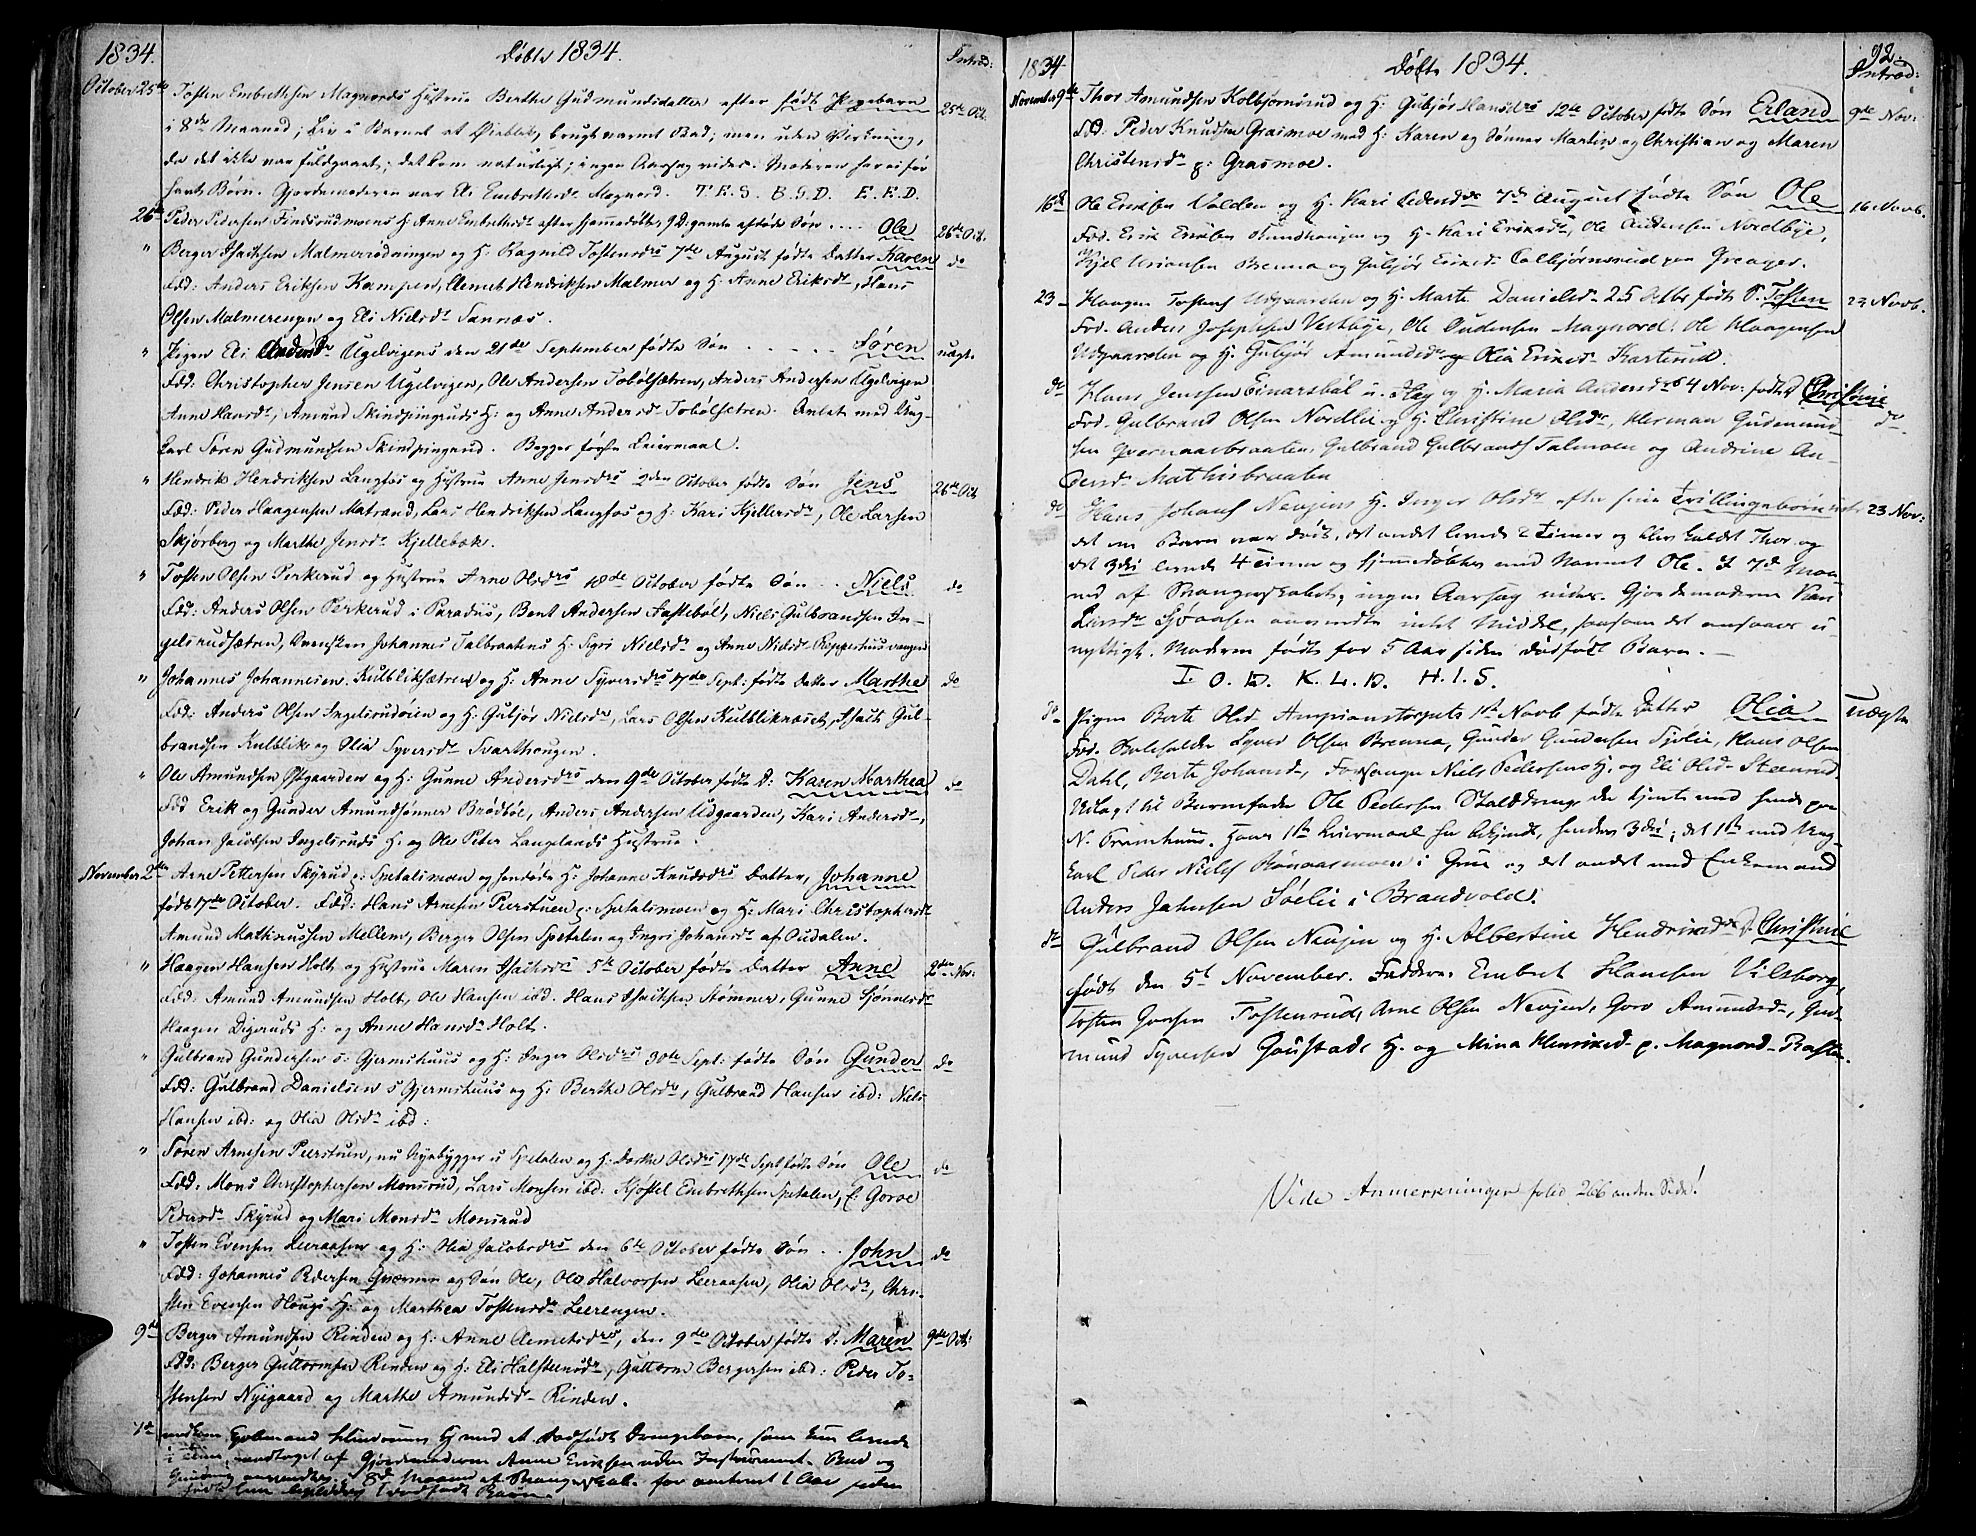 1834.
Døbte 1834.
Introd:
October 25de Tosten Embrethsen Magnords Hustrue Berthe Gudmundsdatter efter født Pigebarn 25de Oct.
i 8de Maaned; Liv i Barnet et Øieblik, brugt varmt Bad; men uden Virkning,
da det ikke var fuldgaaet; det kom naturligt; ingen Aarsag vides. Moderen har ei før
havt Børn. Gjordemoderen var Eli Embrethsdr Magnord. T.E.S. B.G.D. E.E.D.
26de Peder Pedersen Findsrudmoens H: Anne Embrethsdr efter hjemmedøbt, 9 D. gamle afdøde Søn .... Ole 26de Oct.
" Berger Isachsen Malmerrødningen og H: Ragnild Tostensdrs 7de August fødte Datter Karen do
Fad: Anders Eriksen Kampen, Clemet Hendriksen Malmer og H: Anne Eriksdr, Hans
Olsen Malmerengen og Eli Nielsdr Sannæs.
" Pigen Eli Andersdr Ugelvigens den 21de September fødte Søn ..... Søren uægte
Fad: Christopher Jensen Ugelvigen, Ole Andersen Tobølsætren, Anders Andersen Ugelvigen
Anne Hansdr, Amund Skindpungruds H: og Anne Andersdr Tobølsetren. Anlat med Ung-
karl Søren Gudmundsen Skindpungrud. Begges første Leiermaal.
" Hendrik Hendriksen Langfos og Hustrue Anne Jensdrs 2den October fødte Søn Jens 26de Oct
Fad: Peder Haagensen Matrand, Lars Hendriksen Langfos og H: Kari Kjellersdr, Ole Larsen
Skjørberg og Marthe Jensdr Kjellebæk.
" Tosten Olsen Perkerud og Hustrue Anne Olsdrs 18de October fødte Søn .. Niels do
Fad: Anders Olsen Perkerud i Paradiis, Bent Andersen Fastebøl, Niels Gulbrandsen In-
gelsrudsætren, Svensken Johannes Talbraatens H: Sigri Nielsdr og Anne Nielsdr Kopperhuusvangen
" Johannes Johannesen Kulbliksætren og H: Anne Syversdrs 17de Sept: fødte Datter Marthe do
Fad: Anders Olsen Ingelsrudøien og H: Gubjør Nielsdr, Lars Olsen Kulblikneset, Isach Gul-
brandsen Kulblik og Olia Syversdr Svarthougen.
" Ole Amundsen Ostgaarden og H: Gunne Andersdrs den 9de October fødte D: Karen Marthea do
Fad Erik og Gunder Amundsønner Brødbøl, Anders Andersen Udgaarden, Kari Andersdr,
Johan Jacobsen Ingelsruds H: og Ole Peter Langelands Hustrue.
November 2de Arne Pettersen Skyrud p: Spetalsmoen og hendøde H: Johanne Knudsdrs Datter, Johanne
født 17de October. Fad: Hans Arnesen Peerstuen p: Spetalsmoen og H: Mari Christophersdr
Amund Mathiassen Mellem, Berger Olsen Spetalen og Ingri Johansdr af Oudalen.
" Haagen Hansen Holt og Hustrue Maren Isachsdrs 5te October fødte Datter Anne 2den Nov:
Fad: Amund Amundsen Holt, Ole Hansen ibd. Hans Isachsen Stømner, Gunne Sjønnesdr
Haagen Digeruds H: og Anne Hansdr Holt.
" Gulbrand Gundersen s: Gjermshuus og H: Inger Olsdrs 30te Sept: fødte Søn Gunder do
Fad: Gulbrand Danielsen s Gjermshuus og H: Berthe Olsdr, Gulbrand Hansen ibd: Niels
Hansen ibd: og Olia Olsdr ibd:
" Søren Arnesen Peerstuen, nu Nyebygger u Spetalen og H: Dorthe Olsdrs 17de Sept fødte Søn Ole do
Fad: Mons Christophersen Monsrud, Lars Monsen ibd: Kjøstel Embrethsen Spetalen, E: Goroe
Pedersdr Skyrud og Mari Monsdr Monsrud
" Tosten Evensen Leeraasen og H: Olia Jacobsdrs den 6te October fødte Søn .. John do
Fad: Johannes Pedersen Quernen og Søn Ole, Ole Halvorsen Leeraasen, Olia Olsdr, Chri-
sten Evensen Hougs H: og Marthea Tostensdr Leerengen.
9de Berger Amundsen Rinden og H: Anne Clemetsdrs, den 9de October fødte D: Maren 9de Oct:
Fad: Berger Guttormsen Rinden og H: Eli Halstensdr, Guttorm Bergersen ibd: Peder To-
stensen Nyigaard og Marthe Amundsdr Rinden.
H: med et dødfødt Drengebarn, som kun levede
modtaget af Gjordemoderen Anne Eriksen uden Instrument. Bad og
8de Maaned af Svangerskab. for omtrent 1 Aar siden
dødfødt Barn.
1834
Døbte 1834.
92.
Introd:
November 9de Thor Amundsen Kolbjørnsrud og H: Gubjør Hansdrs 12te October fødte Søn Erland 9de Nov:
Fad: Peder Knudsen Grasmoe med H: Karen og Sønner Martin og Christian og Maren
Christensdr p: Grasmoe.
16d Ole Eriksen Volden og H. Kari 7de August fødte Søn Ole 16 Novb.
Fad. Erik Eriksen Rundhaugen og H. Kari Eriksdr, Ole Andersen Nordbye,
Kjel Brenna og Gubjør Eriksd. Colbjørnsrud paa Greager.
23 Haagen Tostens Udgaarden og H. Marte Danielsd. 25 Octbr fødte S. Tosten 23 Novb.
Fad. Anders Josephsen Vestbye, Ole Oudensen Magnord. Ole Haagensen
Udgaarden og H. Gubjør Amundsdr og Olia Eriksd. Karterud.
do Hans Jenssen Einarsbøl u. og H. Maria Andersdrs 4 Nov: fødte D Christine do.
Fad. Gulbrand Olsen Nordlie og H. Christine Olsdr, Herman Gudmund-
sen Qvernaasbraaten, Gulbrand Gulbrands Talmoen og Andrine An-
dersdr Mathisbraaten
do Hans Johans Nevjens H. Inger Olsdr efter sine Trillingebørn 23 Nov:
det ene Barn var død, det andet levede 2 Timer og blev kaldt Thor og
det 3die levede 4 Timer og hjemmedøbtes med Navnet Ole. I 7de Maa-
ned af Svangerskabet; ingen Aarsag vides. Gjordemoderen Kari
Larsdr Sjøaasen anvendte intet Middel, saasom det ansaaes u-
nyttigt. Moderen fødte for 5 Aar siden dødfødt Barn.
I. O. D. K. L. D. H. I. S.
do Pigen Berte Olsd. Ampianstorpets 1st Novb fødte Datter Olia uægte
Fad. Syver Olsen Brenna, Gunder Gundersen Sjølie, Hans Olsen
Dahl, Berte Johansd., Forsanger Niels Pedersens H. og Eli Olsd. Steenrud
Udlagt til Barnefader Ole Pedersen der tjente med hende paa
N. Præmhuus. Hans 1ste Leiermaal saa bekjendt, hendes 3die; det 1ste med Ung-
karl Peder Niels Rønaasmoen i Grue og det andet med Enkemand
Anders Jahnsen Sølie i Brandvold.
do Gulbrand Olsen Nevjen og H. Albertine Hendriksdr D. Christine
født den 5t November. Faddere: Embret Hansen Vilsborg,
Tosten Tostenrud, Arne Olsen Nevjen, Goro Amundsd., Gud-
mund Syversen Goustads H. og Mina Henriksd. p. Magnord-Rasta.
Vide Anmerkninger folio 266 anden Side!